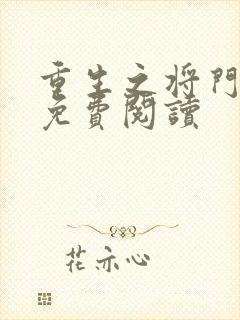 重生之将門
免費閱讀
花亦心